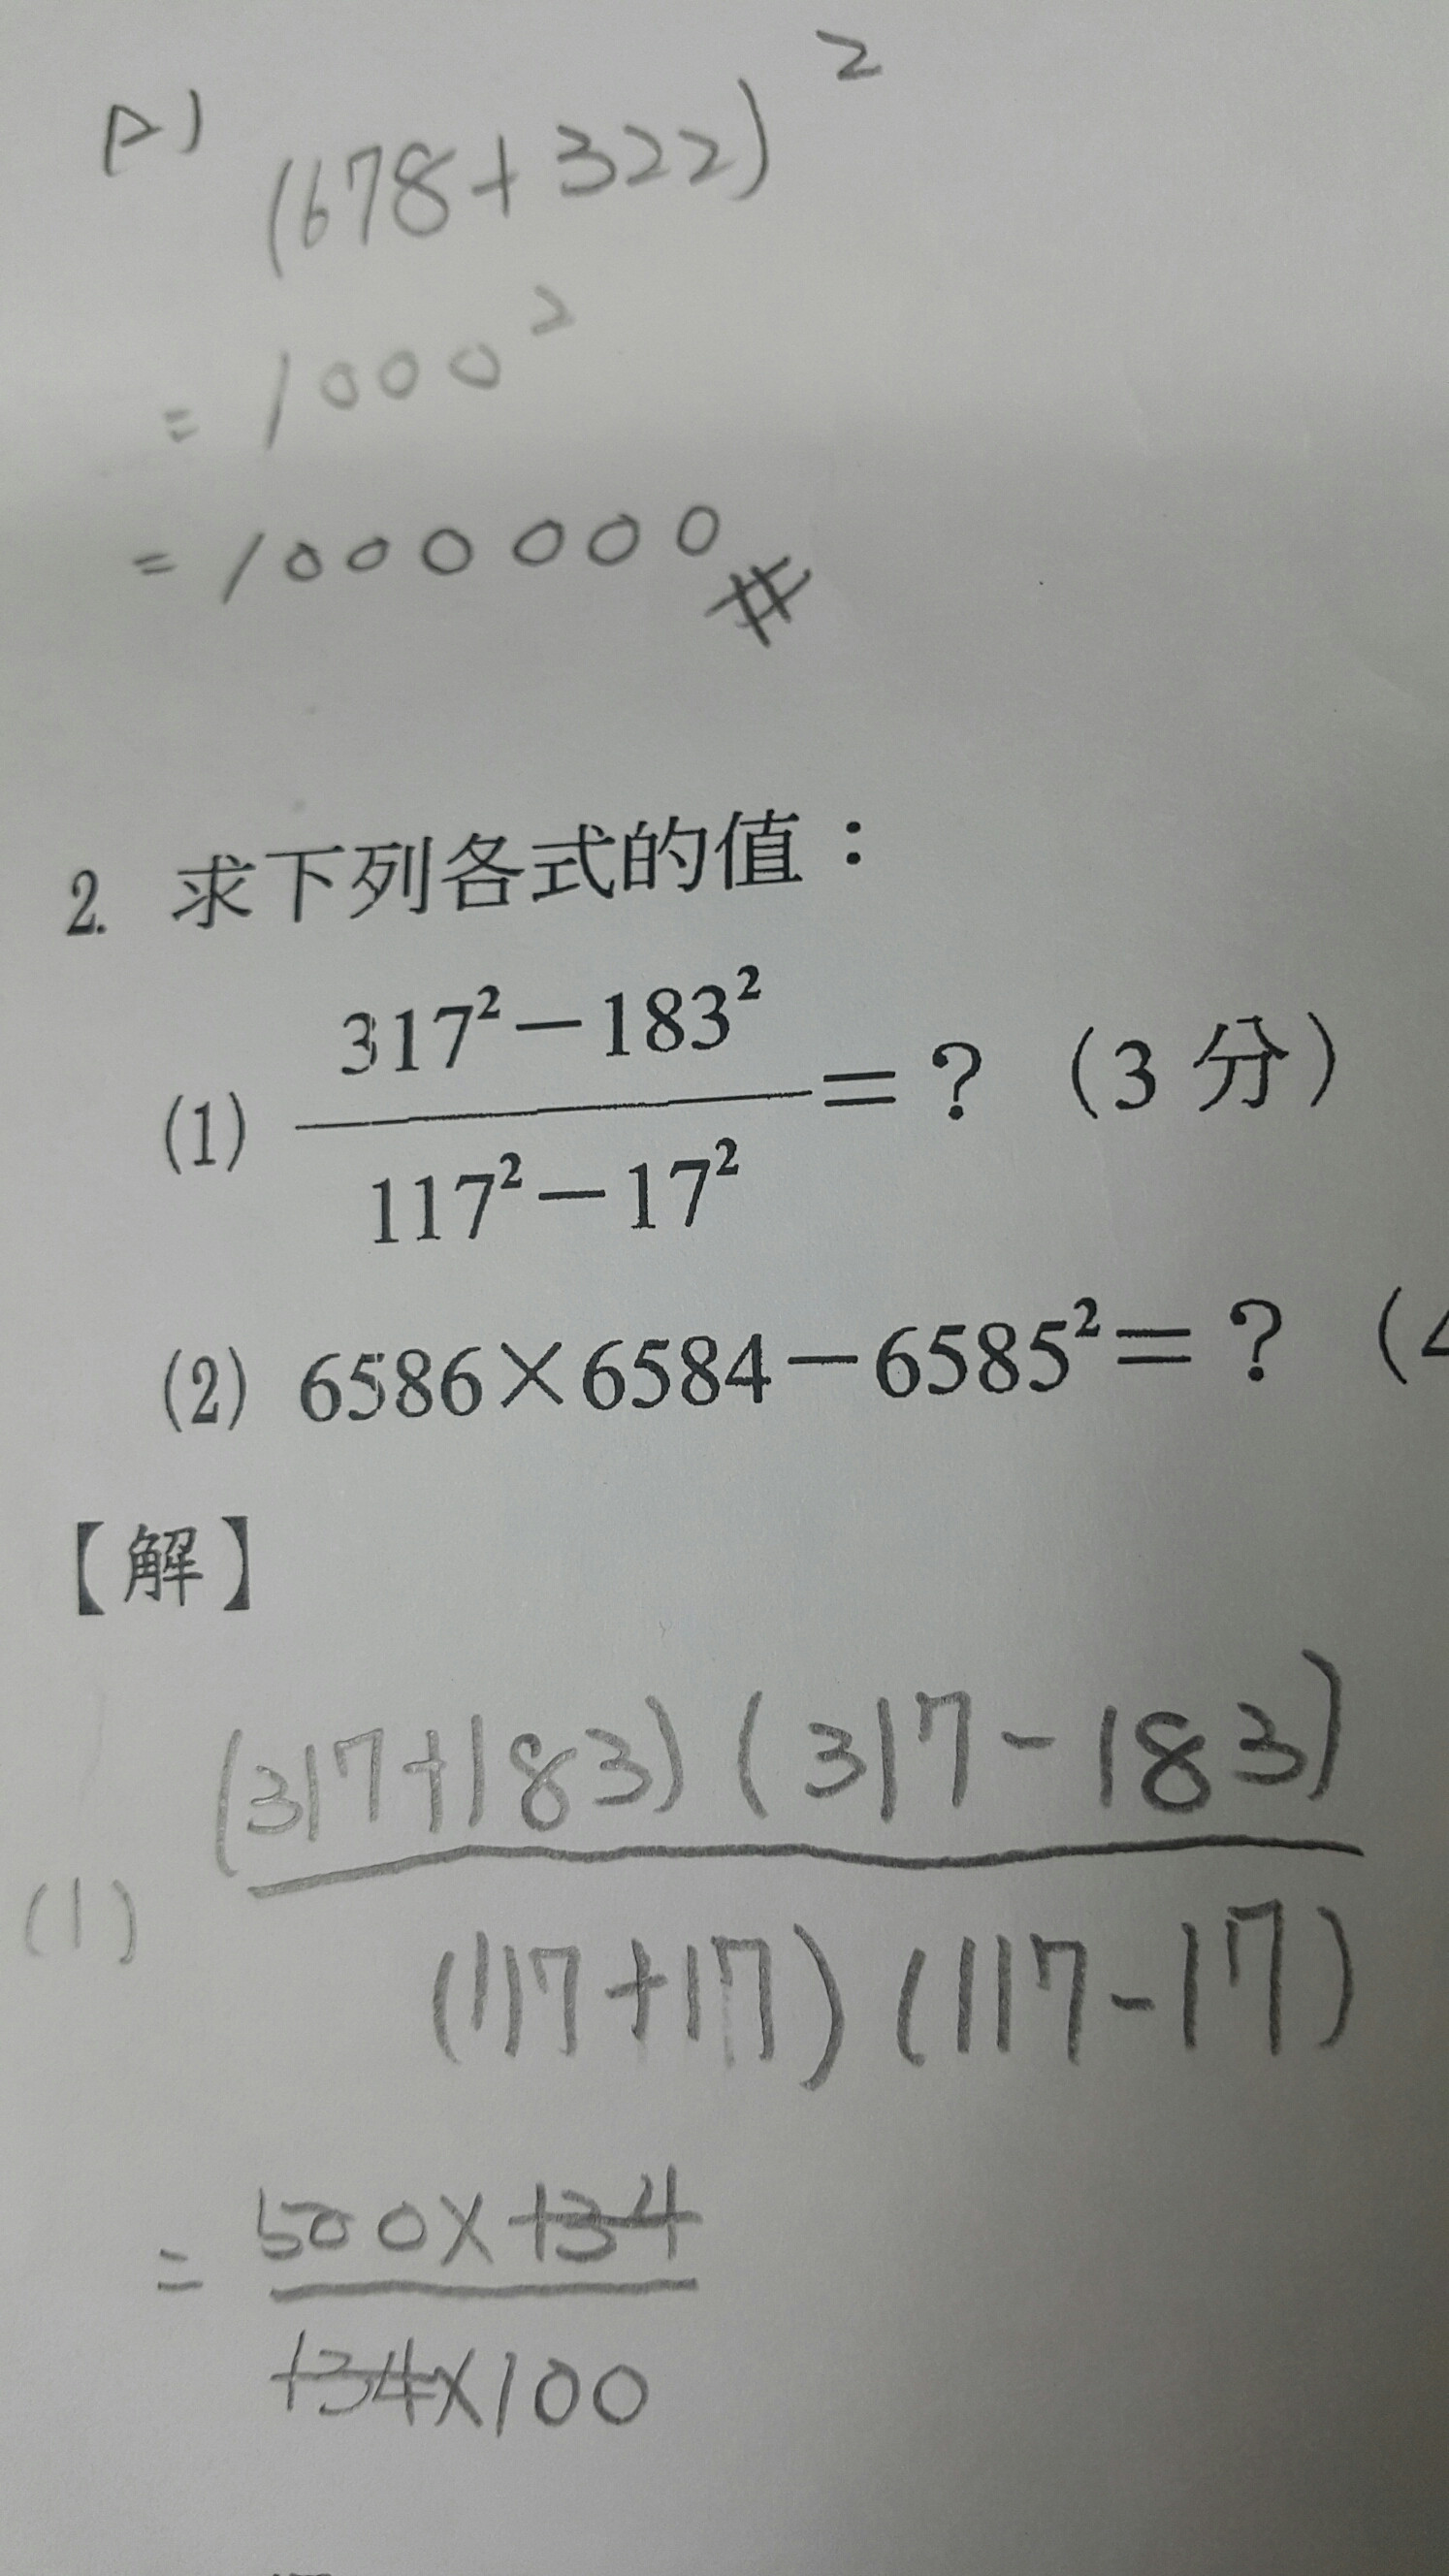 (678+322)²
=1000²
=1000000#
2. 求下列各式的值：
(1) (317²－183²)/(117²－17²)＝？（3 分）
(2) 6586×6584－6585²＝？（
【解】
(1) (317+183)(317-183)/(117+17)(117-17)
= 500×134/134×100